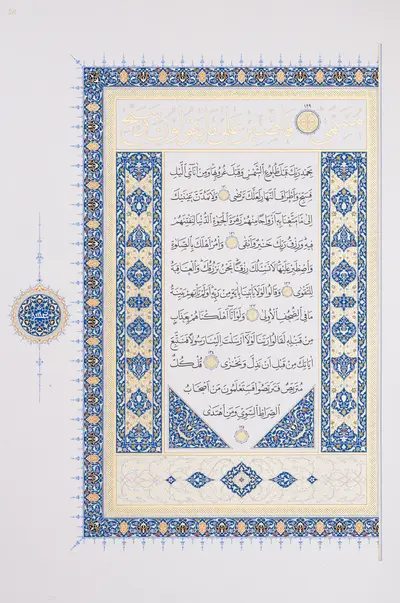 مُسَمًّى ١٢٩ فَاصْبِرْ عَلَىٰ مَا يَقُولُونَ وَسَبِّحْ
بِحَمْدِ رَبِّكَ قَبْلَ طُلُوعِ الشَّمْسِ وَقَبْلَ غُرُوبِهَا وَمِنْ آنَاءِ اللَّيْلِ
فَسَبِّحْ وَأَطْرَافَ النَّهَارِ لَعَلَّكَ تَرْضَىٰ ١٣٠ وَلَا تَمُدَّنَّ عَيْنَيْكَ
إِلَىٰ مَا مَتَّعْنَا بِهِ أَزْوَاجًا مِنْهُمْ زَهْرَةَ الْحَيَاةِ الدُّنْيَا لِنَفْتِنَهُمْ
فِيهِ وَرِزْقُ رَبِّكَ خَيْرٌ وَأَبْقَىٰ ١٣١ وَأْمُرْ أَهْلَكَ بِالصَّلَاةِ
وَاصْطَبِرْ عَلَيْهَا لَا نَسْأَلُكَ رِزْقًا نَحْنُ نَرْزُقُكَ وَالْعَاقِبَةُ
لِلتَّقْوَىٰ ١٣٢ وَقَالُوا لَوْلَا يَأْتِينَا بِآيَةٍ مِنْ رَبِّهِ أَوَلَمْ تَأْتِهِمْ بَيِّنَةُ
مَا فِي الصُّحُفِ الْأُولَىٰ ١٣٣ وَلَوْ أَنَّا أَهْلَكْنَاهُمْ بِعَذَابٍ
مِنْ قَبْلِهِ لَقَالُوا رَبَّنَا لَوْلَا أَرْسَلْتَ إِلَيْنَا رَسُولًا فَنَتَّبِعَ
آيَاتِكَ مِنْ قَبْلِ أَنْ نَذِلَّ وَنَخْزَىٰ ١٣٤ قُلْ كُلٌّ
مُتَرَبِّصٌ فَتَرَبَّصُوا فَسَتَعْلَمُونَ مَنْ أَصْحَابُ
الصِّرَاطِ السَّوِيِّ وَمَنِ اهْتَدَىٰ
١٣٥